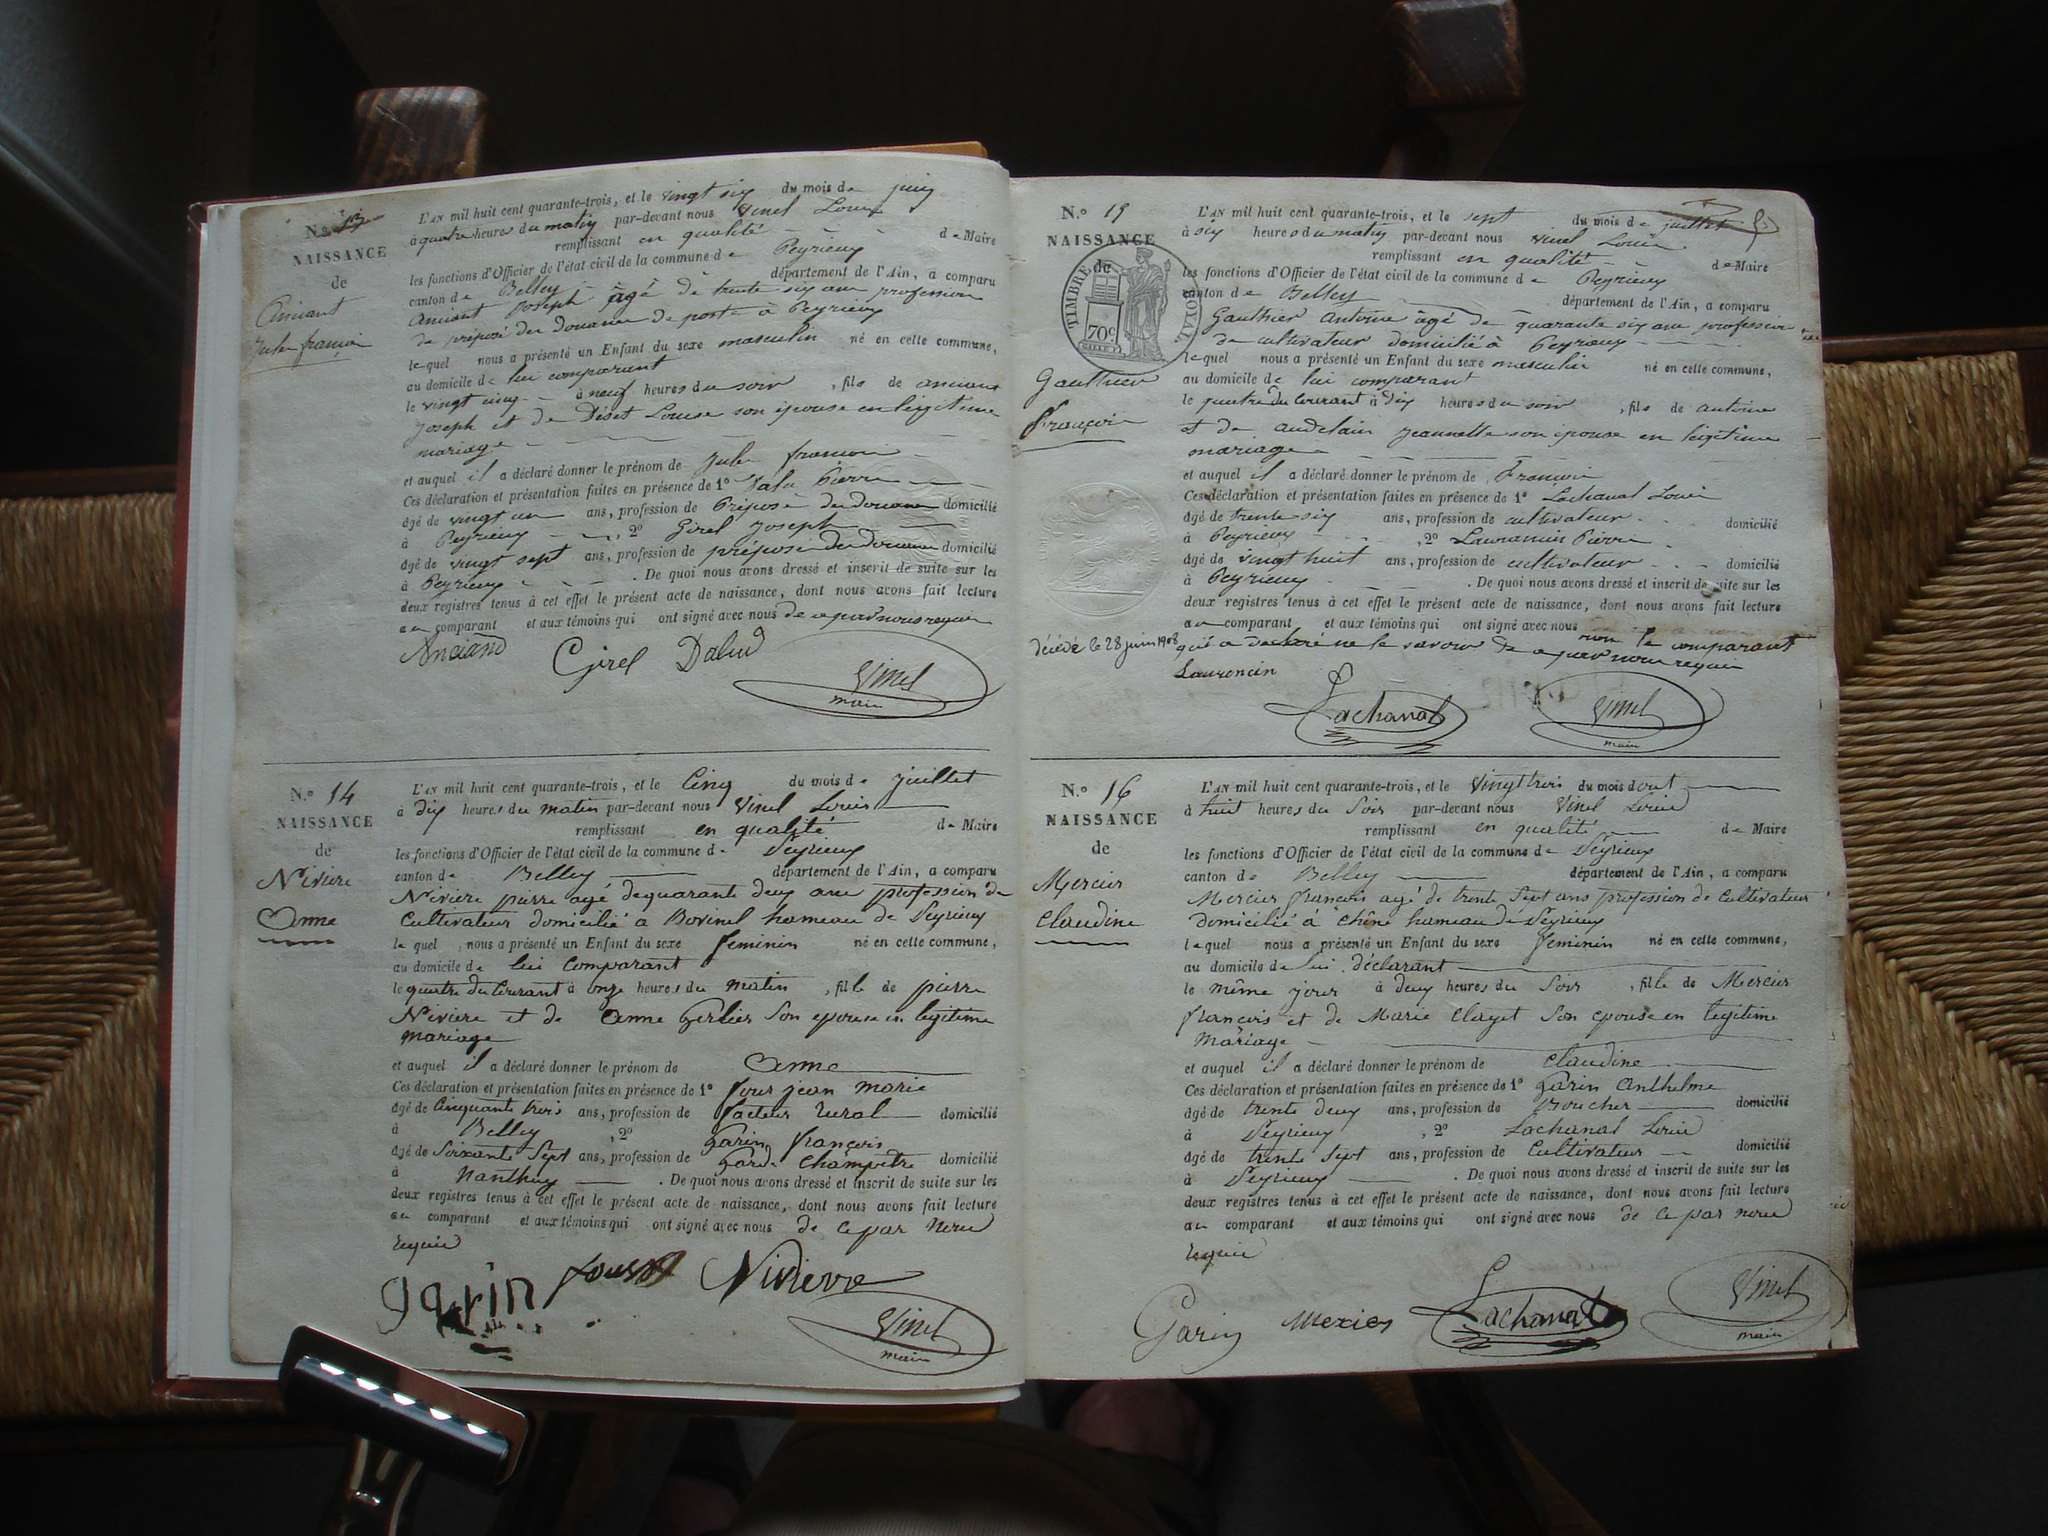 N.o 13
NAISSANCE
de
Anciant
Jule françois
L'AN mil huit cent quarante-trois, et le vingt six du mois de juin
à quatre heures du matin par-devant nous Vinel Louis
remplissant en qualité de Maire
les fonctions d'Officier de l'état civil de la commune de Peyrieux
canton de Belley département de l'Ain, a comparu
Anciant Joseph âgé de trente six ans profession
de préposé des douanes de poste à Peyrieux
lequel nous a présenté un Enfant du sexe masculin né en cette commune,
au domicile de lui comparant
le vingt cinq à neuf heures du soir, fils de anciant
Joseph et de Louise son épouse en légitime
mariage
et auquel il a déclaré donner le prénom de Jule françois
Ces déclaration et présentation faites en présence de 1o Pierre
âgé de vingt un ans, profession de Préposé des douanes domicilié
à Peyrieux, 2o Girel Joseph
âgé de vingt sept ans, profession de préposé des douanes domicilié
à Peyrieux. De quoi nous avons dressé et inscrit de suite sur les
deux registres tenus à cet effet le présent acte de naissance, dont nous avons fait lecture
au comparant et aux témoins qui ont signé avec nous de ce par nous requis
Anciand Girel Vinel
maire
N.o 14
NAISSANCE
de
Nivière
Anne
L'AN mil huit cent quarante-trois, et le Cinq du mois de juillet
à dix heures du matin par-devant nous Vinel Louis
remplissant en qualité de Maire
les fonctions d'Officier de l'état civil de la commune de Peyrieux
canton de Belley département de l'Ain, a comparu
Nivière pierre agé de quarante deux ans profession de
Cultivateur domicilié a Bovinel hameau de Peyrieux
lequel nous a présenté un Enfant du sexe feminin né en cette commune,
au domicile de lui comparant
le quatre du Courant à onze heures du matin, fille de pierre
Nivière et de Anne Gerlier Son epouse en legitime
mariage
et auquel il a déclaré donner le prénom de Anne
Ces déclaration et présentation faites en présence de 1o jean marie
âgé de Cinquante trois ans, profession de facteur rural domicilié
à Belley, 2o Garin françois
âgé de Soixante Sept ans, profession de Garde Champêtre domicilié
à Nanthuy. De quoi nous avons dressé et inscrit de suite sur les
deux registres tenus à cet effet le présent acte de naissance, dont nous avons fait lecture
au comparant et aux témoins qui ont signé avec nous de ce par nous
requis
garin Nivierre Vinel
maire
N.o 15
NAISSANCE
de
TIMBRE ROYAL
70c
Gauthier
François
décédé le 28 juin 1908
L'AN mil huit cent quarante-trois, et le sept du mois de juillet
à six heures du matin par-devant nous Vinel Louis
remplissant en qualité de Maire
les fonctions d'Officier de l'état civil de la commune de Peyrieux
canton de Belley département de l'Ain, a comparu
Gauthier Antoine âgé de quarante six ans profession
de cultivateur domicilié à Peyrieux
lequel nous a présenté un Enfant du sexe masculin né en cette commune,
au domicile de lui comparant
le quatre du Courant à dix heures du soir, fils de antoine
et de Jeannette son épouse en légitime
mariage
et auquel il a déclaré donner le prénom de François
Ces déclaration et présentation faites en présence de 1o Lachanal Louis
âgé de trente six ans, profession de cultivateur domicilié
à Peyrieux, 2o Pierre
âgé de vingt huit ans, profession de cultivateur domicilié
à Peyrieux. De quoi nous avons dressé et inscrit de suite sur les
deux registres tenus à cet effet le présent acte de naissance, dont nous avons fait lecture
au comparant et aux témoins qui ont signé avec nous non le comparant
qui a declaré ne le savoir de ce par nous requis
Laurencin
Lachanal Vinel
maire
N.o 16
NAISSANCE
de
Mercier
Claudine
L'AN mil huit cent quarante-trois, et le Vingt trois du mois d'out
à huit heures du Soir par-devant nous Vinel Louis
remplissant en qualité de Maire
les fonctions d'Officier de l'état civil de la commune de Peyrieux
canton de Belley département de l'Ain, a comparu
Mercier françois agé de trente Sept ans profession de Cultivateur
domicilié à Chêne hameau de Peyrieux
lequel nous a présenté un Enfant du sexe feminin né en cette commune,
au domicile de lui déclarant
le même jour à deux heures du Soir, fille de Mercier
françois et de Marie Clayet Son epouse en legitime
mariage
et auquel il a déclaré donner le prénom de Claudine
Ces déclaration et présentation faites en présence de 1o Garin Anthelme
âgé de trente deux ans, profession de Boucher domicilié
à Peyrieux, 2o Lachanal Louis
âgé de trente Sept ans, profession de Cultivateur domicilié
à Peyrieux. De quoi nous avons dressé et inscrit de suite sur les
deux registres tenus à cet effet le présent acte de naissance, dont nous avons fait lecture
au comparant et aux témoins qui ont signé avec nous de ce par nous
requis
Garin Lachanal Vinel
maire